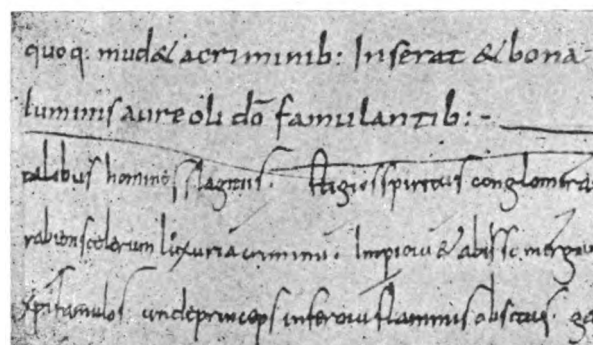 quoq: mud& acriminib: Inserat & bona
luminis aureoli dō famulantib: -
talibus homines stagnis. Stigios spiritus conglomera
rabiem scelerum luxuria criminū. Impiorū & abisso mergun
xpi famulos unde princeps inferorū flammis obscuris. ga